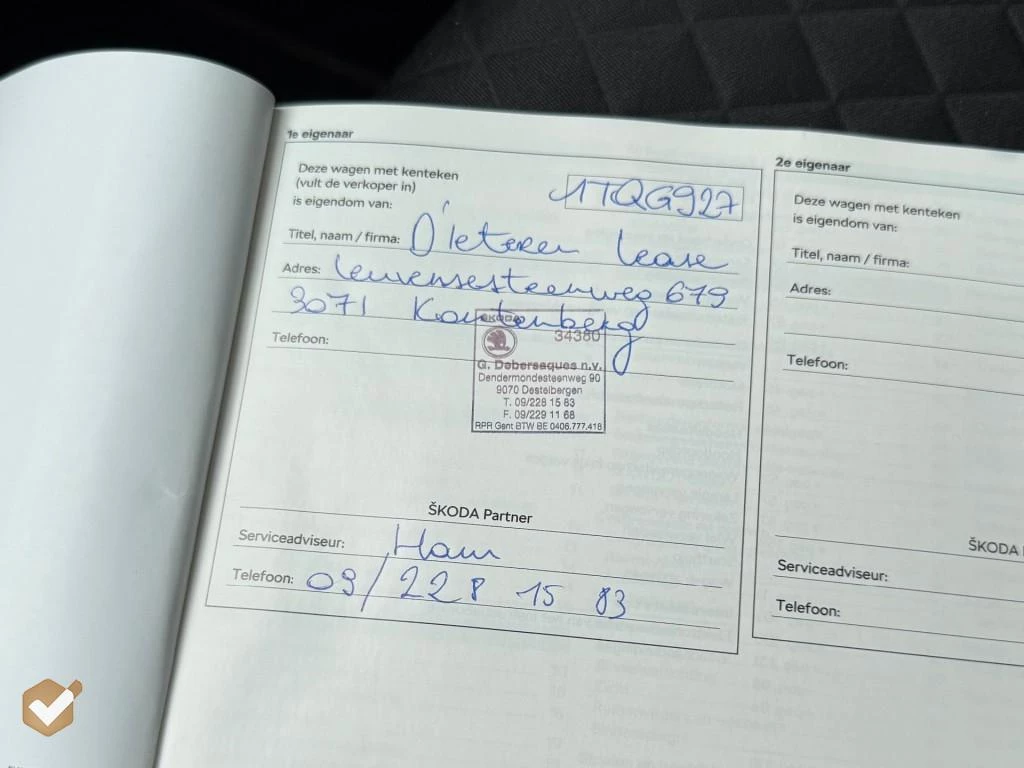 1e eigenaar
Deze wagen met kenteken
(vult de verkoper in)
is eigendom van:
1TQG927
Titel, naam / firma: D'Ieteren Lease
Adres: Leuvensesteenweg 679
3071 Kortenberg
Telefoon:
ŠKODA
34380
G. Debersaques n.v.
Dendermondesteenweg 90
9070 Destelbergen
T. 09/228 15 83
F. 09/229 11 68
RPR Gent BTW BE 0406.777.418
ŠKODA Partner
Serviceadviseur:
Telefoon: 09/228 15 83
2e eigenaar
Deze wagen met kenteken
is eigendom van:
Titel, naam / firma:
Adres:
Telefoon:
ŠKODA
Serviceadviseur:
Telefoon: